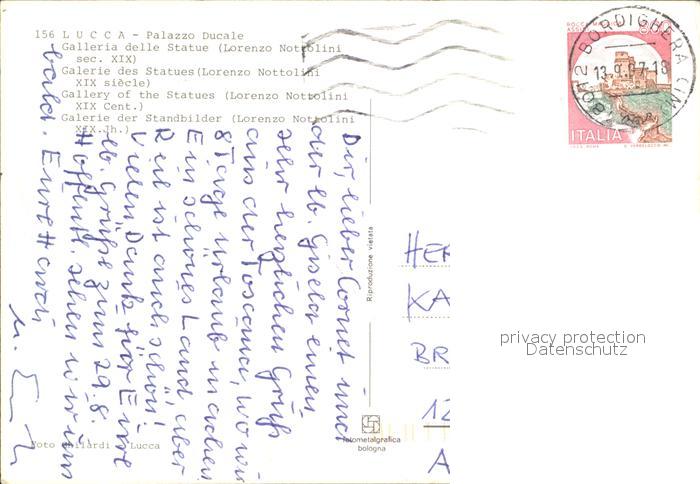 156 LUCCA - Palazzo Ducale
Galleria delle Statue (Lorenzo Nottolini
sec. XIX)
Galerie des Statues (Lorenzo Nottolini
XIX siècle)
Gallery of the Statues (Lorenzo Nottolini
XIX Cent.)
Galerie der Standbilder (Lorenzo Nottolini
XIX.Jh.)
Dir, lieber Cornet und
der lb. Gisela einen
sehr herzlichen Gruß
aus der Toscana, wo wir
8 Tage Urlaub machen
Ein schönes Land, aber
Reit ist auch schön!
Vielen Dank für Eure
lb. Grüße zum 29.8.
Hoffentl. sehen wir uns
bald. Eure
Riproduzione vietata
Foto Ghilardi Lucca
fotometalgrafica
bologna
HER
KA
BR
12
A
BORDIGHERA (IM)
13.9.87-18
ITALIA
privacy protection
Datenschutz